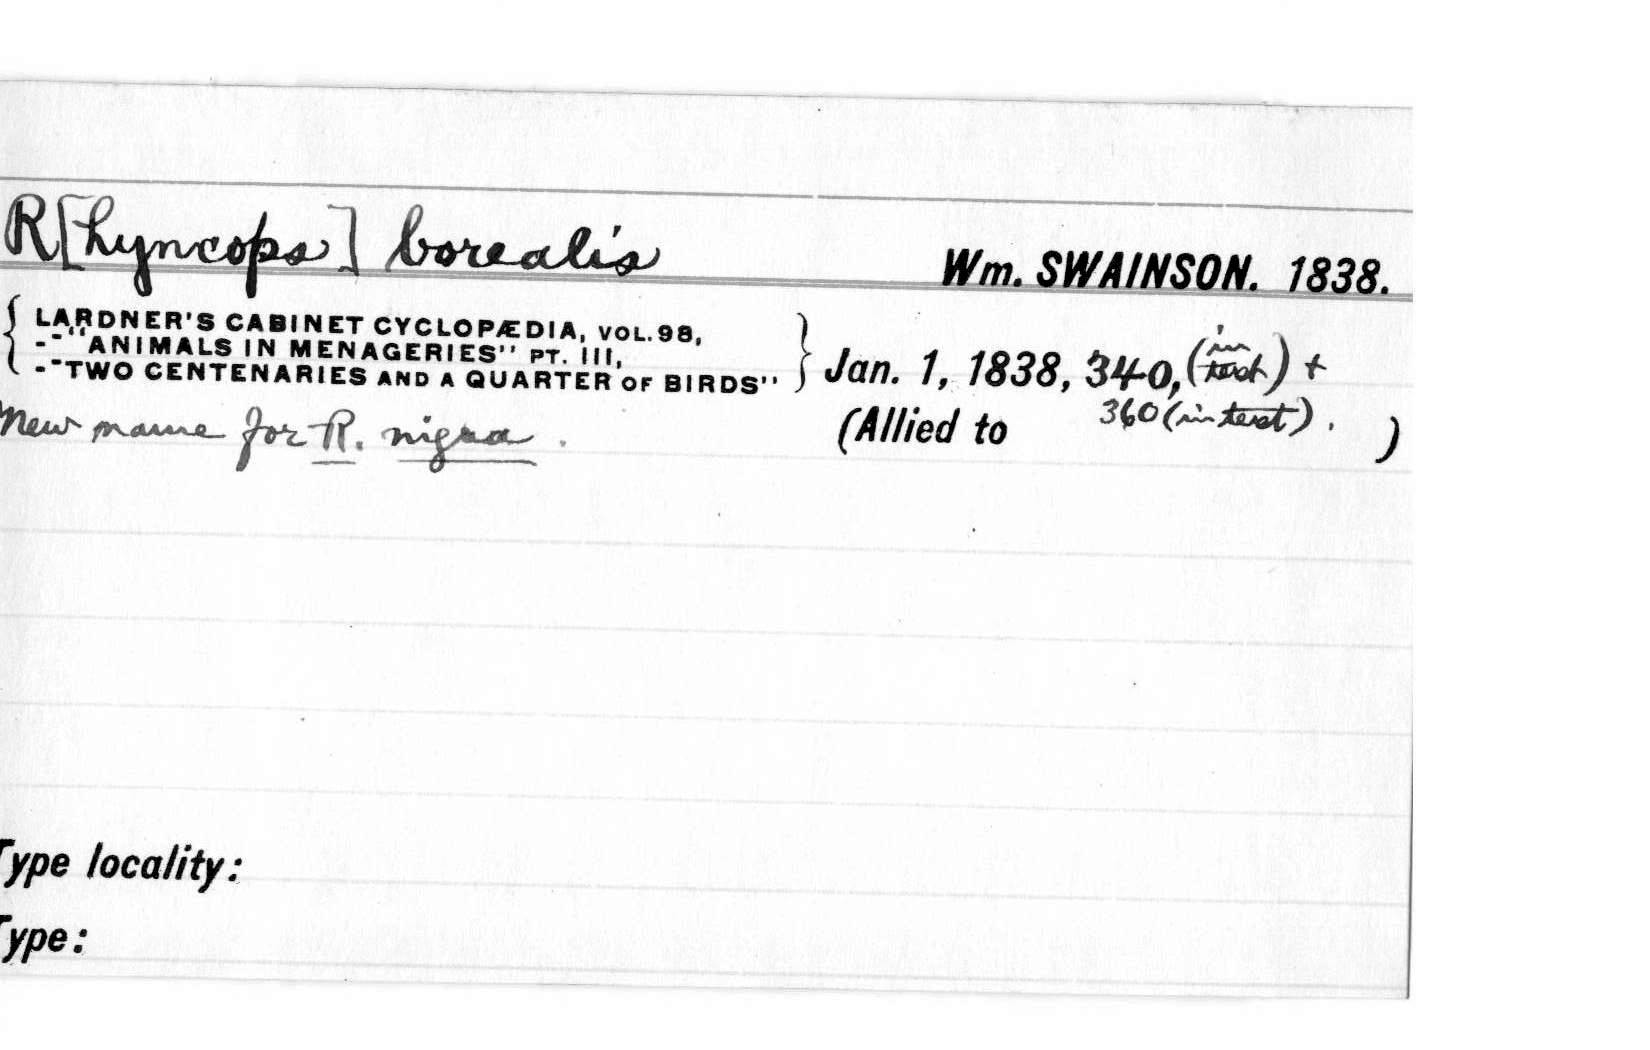 R[hyncops] borealis
Wm. SWAINSON. 1838.
LARDNER'S CABINET CYCLOPÆDIA, VOL. 98,
--"ANIMALS IN MENAGERIES" PT. III,
--"TWO CENTENARIES AND A QUARTER OF BIRDS"
Jan. 1, 1838, 340, (in text) +
360 (in text).
New name for R. nigra.
(Allied to )
Type locality:
Type: